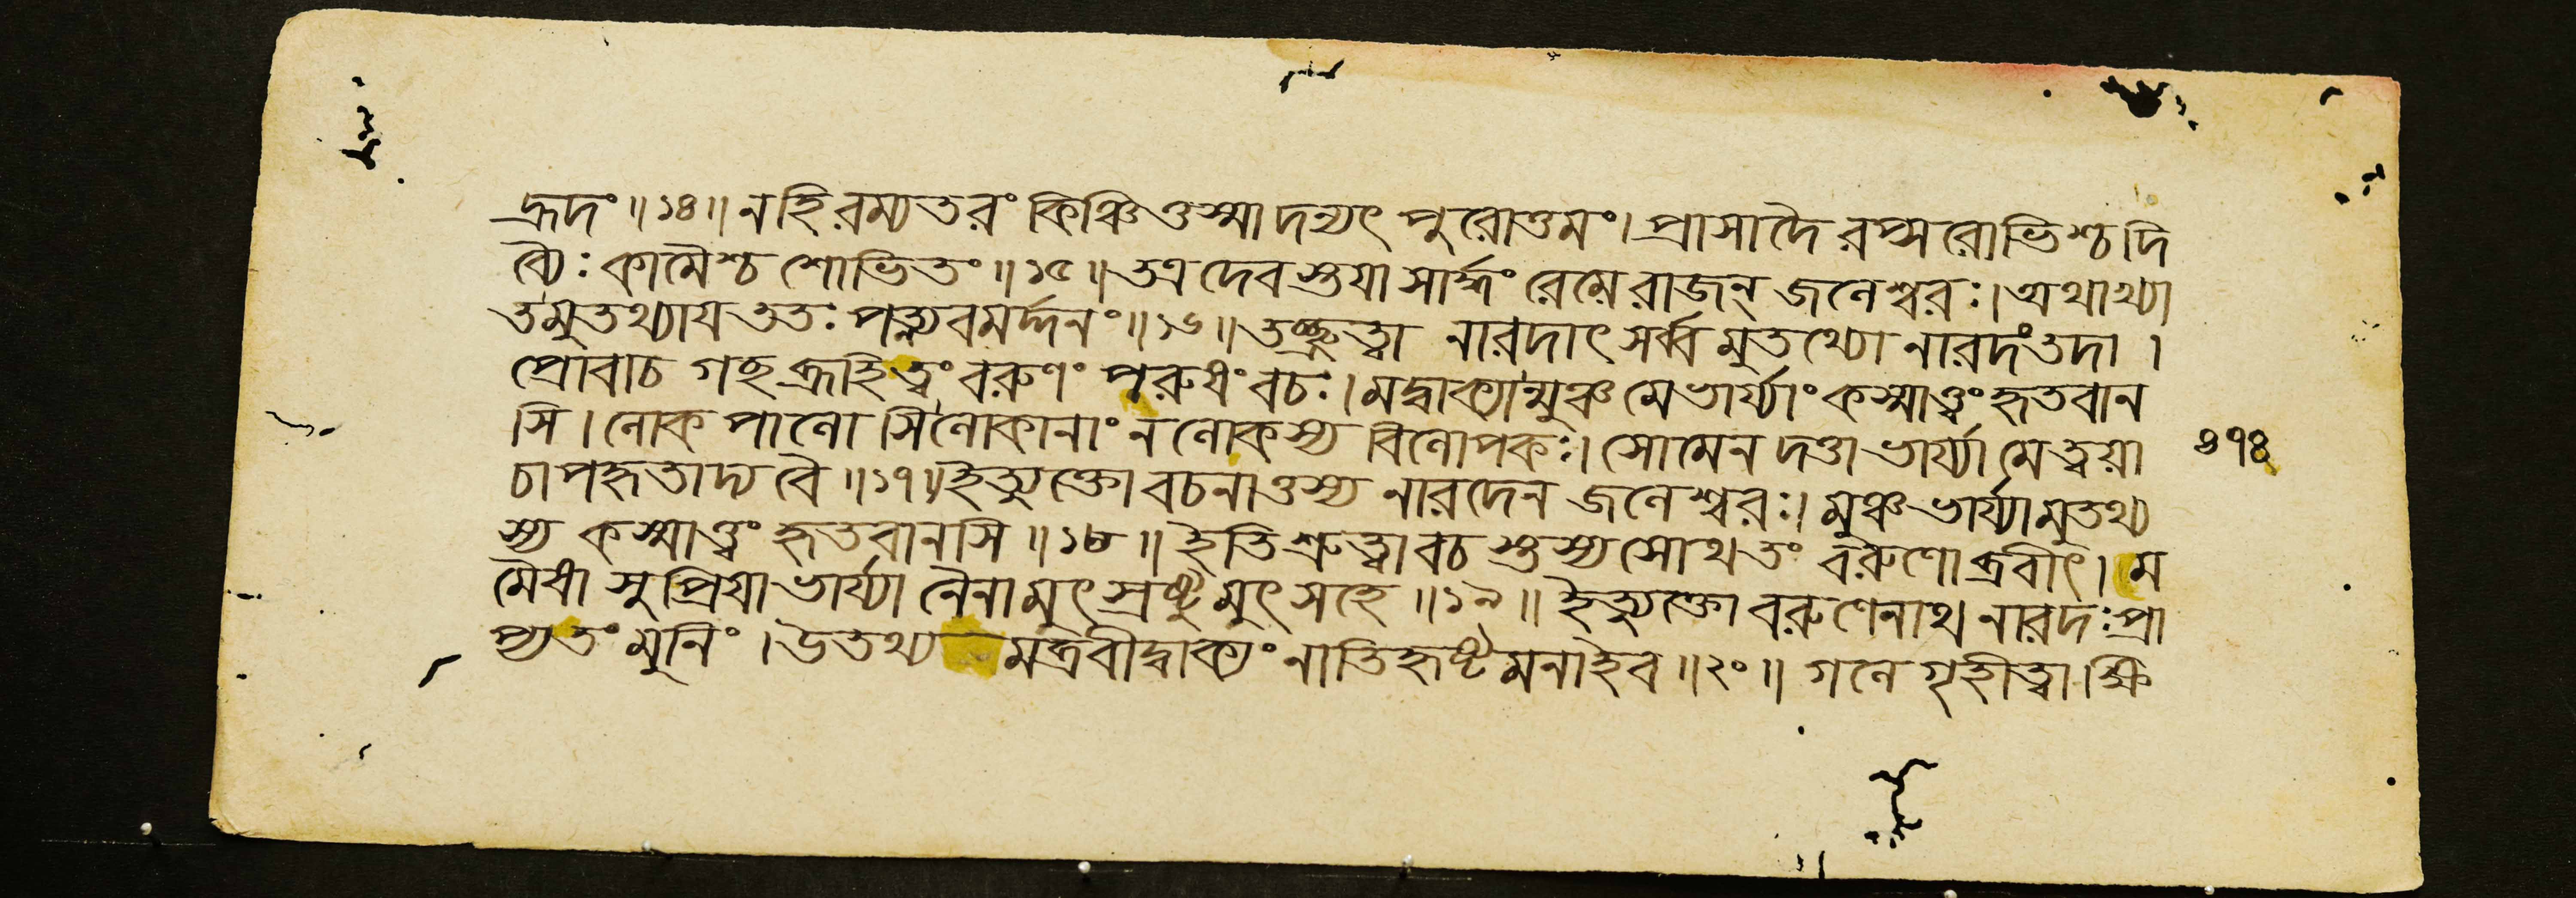 হ্রদং ॥ ১৪ ॥ ন হি রম্যতরং কিঞ্চিত্তস্মাদন্যৎ পুরোত্তমং । প্রাসাদৈরপ্সরোভিশ্চ দি
ব্যৈঃ কামৈশ্চ শোভিতং ॥ ১৫ ॥ তত্র দেবস্তয়া সার্দ্ধং রেমে রাজন্ জনেশ্বরঃ । অথাখ্যা
তমুতথ্যায ততঃ পত্ন্যবমর্দ্দনং ॥ ১৬ ॥ তচ্ছ্রুত্বা নারদাৎ সর্ব্বমুতথ্যো নারদং তদা ।
প্রোবাচ গচ্ছ ব্রূহি ত্বং বরুণং পরুষং বচঃ । মদ্বাক্যান্মুঞ্চ মে ভার্য্যাং কস্মাত্ত্বং হৃতবান
সি । লোকপালোসি লোকানাং ন লোকস্য বিলোপকঃ । সোমেন দত্তা ভার্য্যা মে ত্বয়া
চাপহৃতাদ্য বৈ ॥ ১৭ ॥ ইত্যুক্তো বচনাত্তস্য নারদেন জনেশ্বরঃ । মুঞ্চ ভার্য্যামুতথ্য
স্য কস্মাত্ত্বং হৃতবানসি ॥ ১৮ ॥ ইতি শ্রুত্বা বচস্তস্য সোথ তং বরুণোব্রবীৎ । ম
মৈষা সুপ্রিয়া ভার্য্যা নৈনামুৎস্রষ্টুমুৎসহে ॥ ১৯ ॥ ইত্যুক্তো বরুণেনাথ নারদঃ প্রা
প্য তং মুনিং । উতথ্যমব্রবীদ্বাক্যং নাতিহৃষ্টমনা ইব ॥ ২০ ॥ গলে গৃহীত্বা ক্ষি